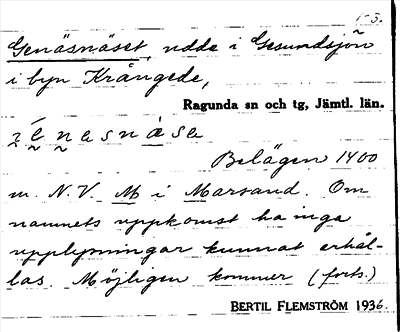 1-3.
Genäsnäset, udde i Gesundsjön
i byn Krångede,
Ragunda sn och tg, Jämtl. län.
Belägen 1400
m. N.V. M i Marsund. Om
namnets uppkomst ha inga
upplysningar kunnat erhål-
las. Möjligen kommer (forts.)
BERTIL FLEMSTRÖM 1936.